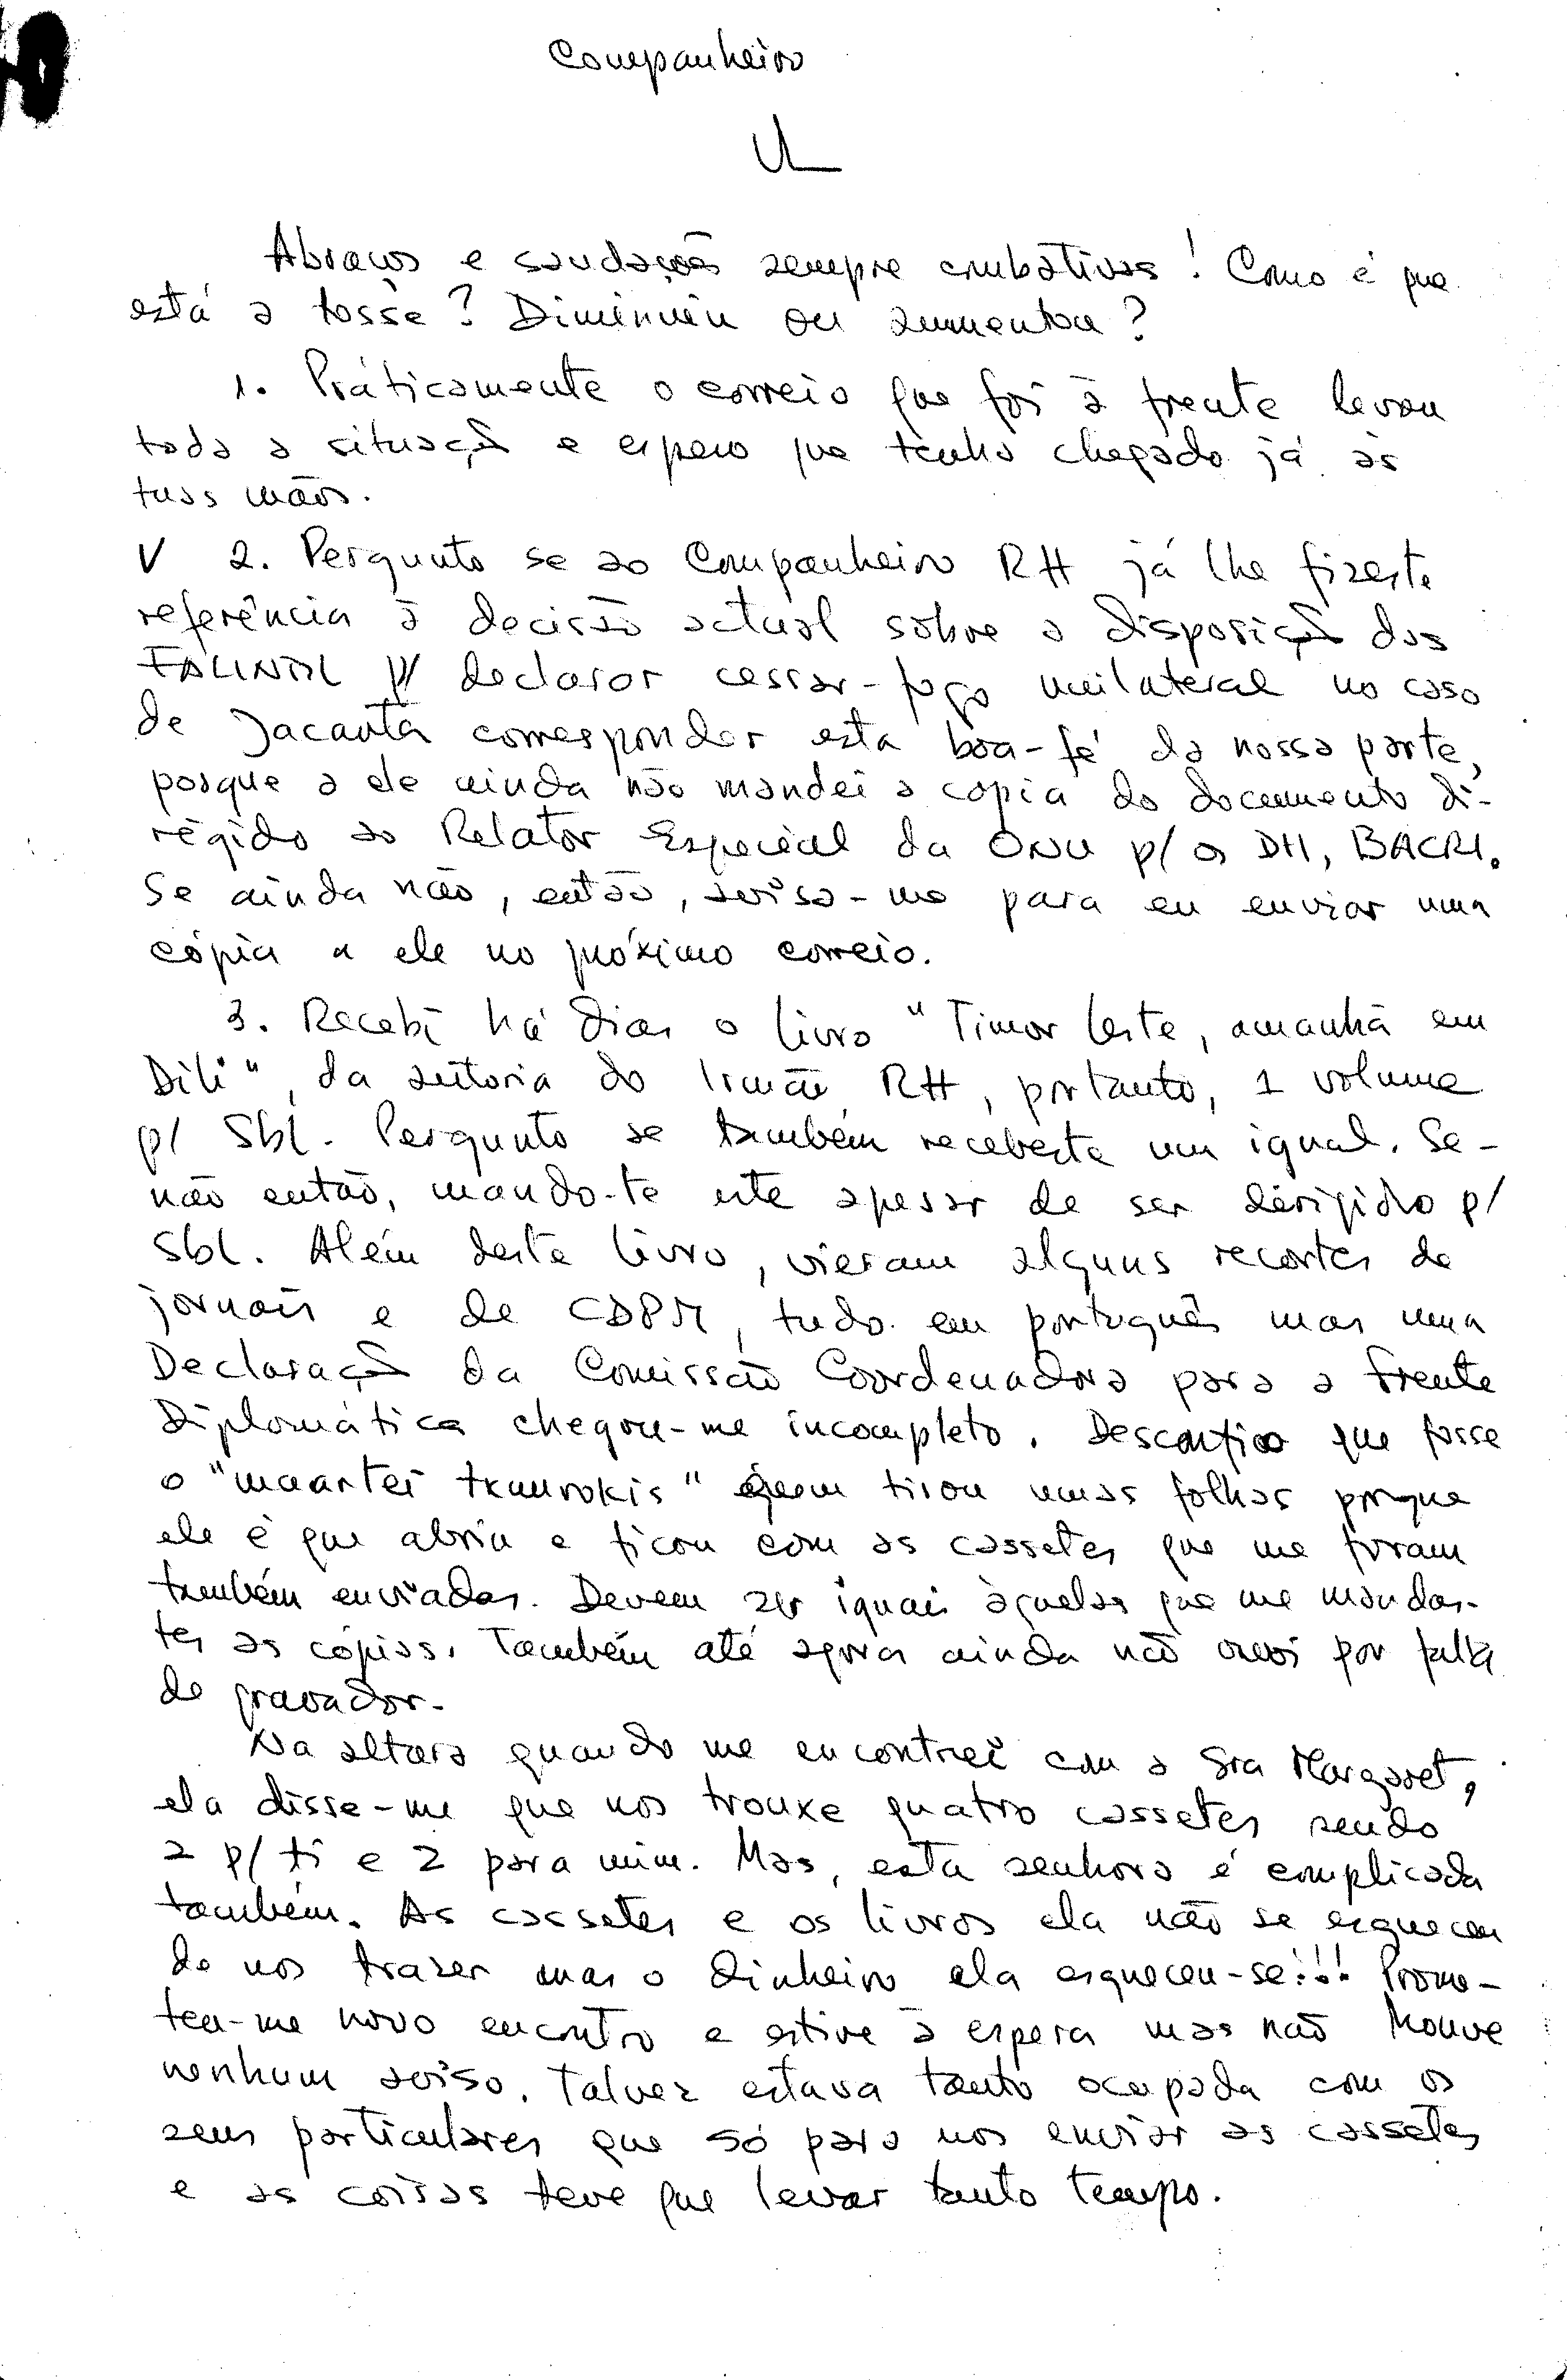 Companheiro
UL
Abraços e saudações sempre combativas! Como é que
está a tosse? Diminuiu ou aumentou?
1. Práticamente o correio que foi à frente levou
toda a situação e espero que tenha chegado já às
tuas mãos.
V 2. Pergunto se ao Companheiro RH já lhe fizeste
referência à decisão actual sobre a disposição das
FALINTIL p/ declarar cessar-fogo unilateral no caso
de Jacarta corresponder esta boa-fé da nossa parte,
porque a ele ainda não mandei a copia do documento di-
rigido ao Relator Especial da ONU p/ os DH, BACRI.
Se ainda não, então, avisa-me para eu enviar uma
cópia a ele no próximo correio.
3. Recebi há dias o livro "Timor Leste, amanhã em
Dili", da autoria do Irmão RH, portanto, 1 volume
p/ Sbl. Pergunto se também recebeste um igual. Se-
não então, mando-te este apesar de ser dirigido p/
Sbl. Além deste livro, vieram alguns recortes de
jornais e de CDPM, tudo em português mas uma
Declaração da Comissão Coordenadora para a Frente
Diplomática chegou-me incompleto. Desconfio que fosse
o "maartei" quem tirou umas folhas porque
ele é que abriu e ficou com as cassetes que me foram
também enviadas. Devem ser iguais àquelas que me mandas-
tes as cópias. Também até agora ainda não ouvi por falta
de gravador.
Na altura quando me encontrei com a Sra Margaret,
ela disse-me que nos trouxe quatro cassetes sendo
2 p/ ti e 2 para mim. Mas, esta senhora é complicada
também. As cassetes e os livros ela não se esqueceu
de nos trazer mas o dinheiro ela esqueceu-se!!! Prome-
teu-me novo encontro e estive à espera mas não houve
nenhum aviso. Talvez estava tanto ocupada com os
seus particulares que só para nos enviar as cassetes
e as coisas teve que levar tanto tempo.